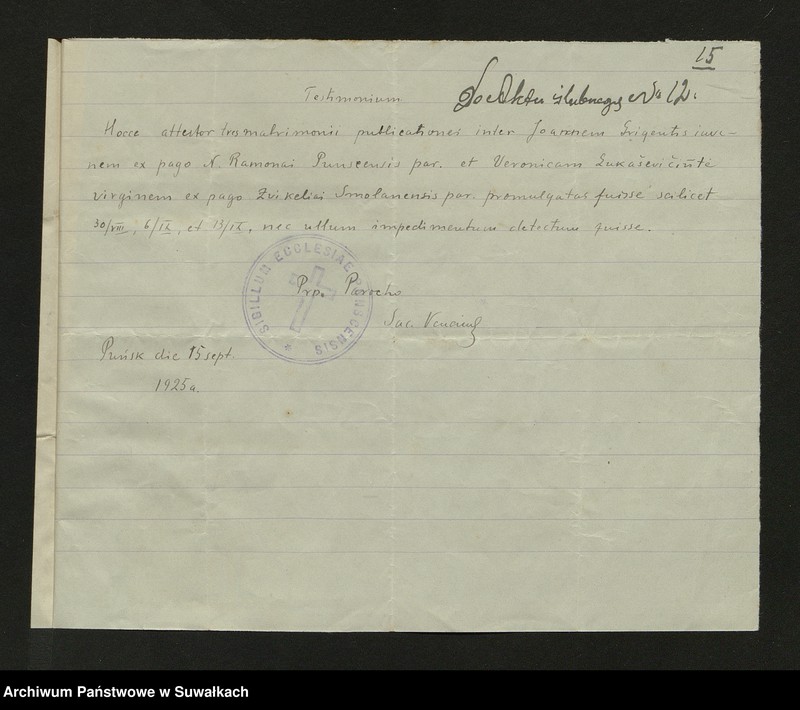 15
Do Aktu ślubnego No 12.
Testimonium
Hocce attestor tres matrimonii publicationes inter Joannem Grigentis iuve-
nem ex pago N. Ramonai Punscensis par. et Veronicam Łukaševičiūtė
virginem ex pago Zvikeliai Smolanensis par. promulgatas fuisse scilicet
30/VIII, 6/IX, et 13/IX, nec ullum impedimentum detectum fuisse.
SIGILLUM ECCLESIAE PUNSCENSIS
Prp. Parocho
Sac.
Puńsk die 15 sept.
1925 a.
Archiwum Państwowe w Suwałkach